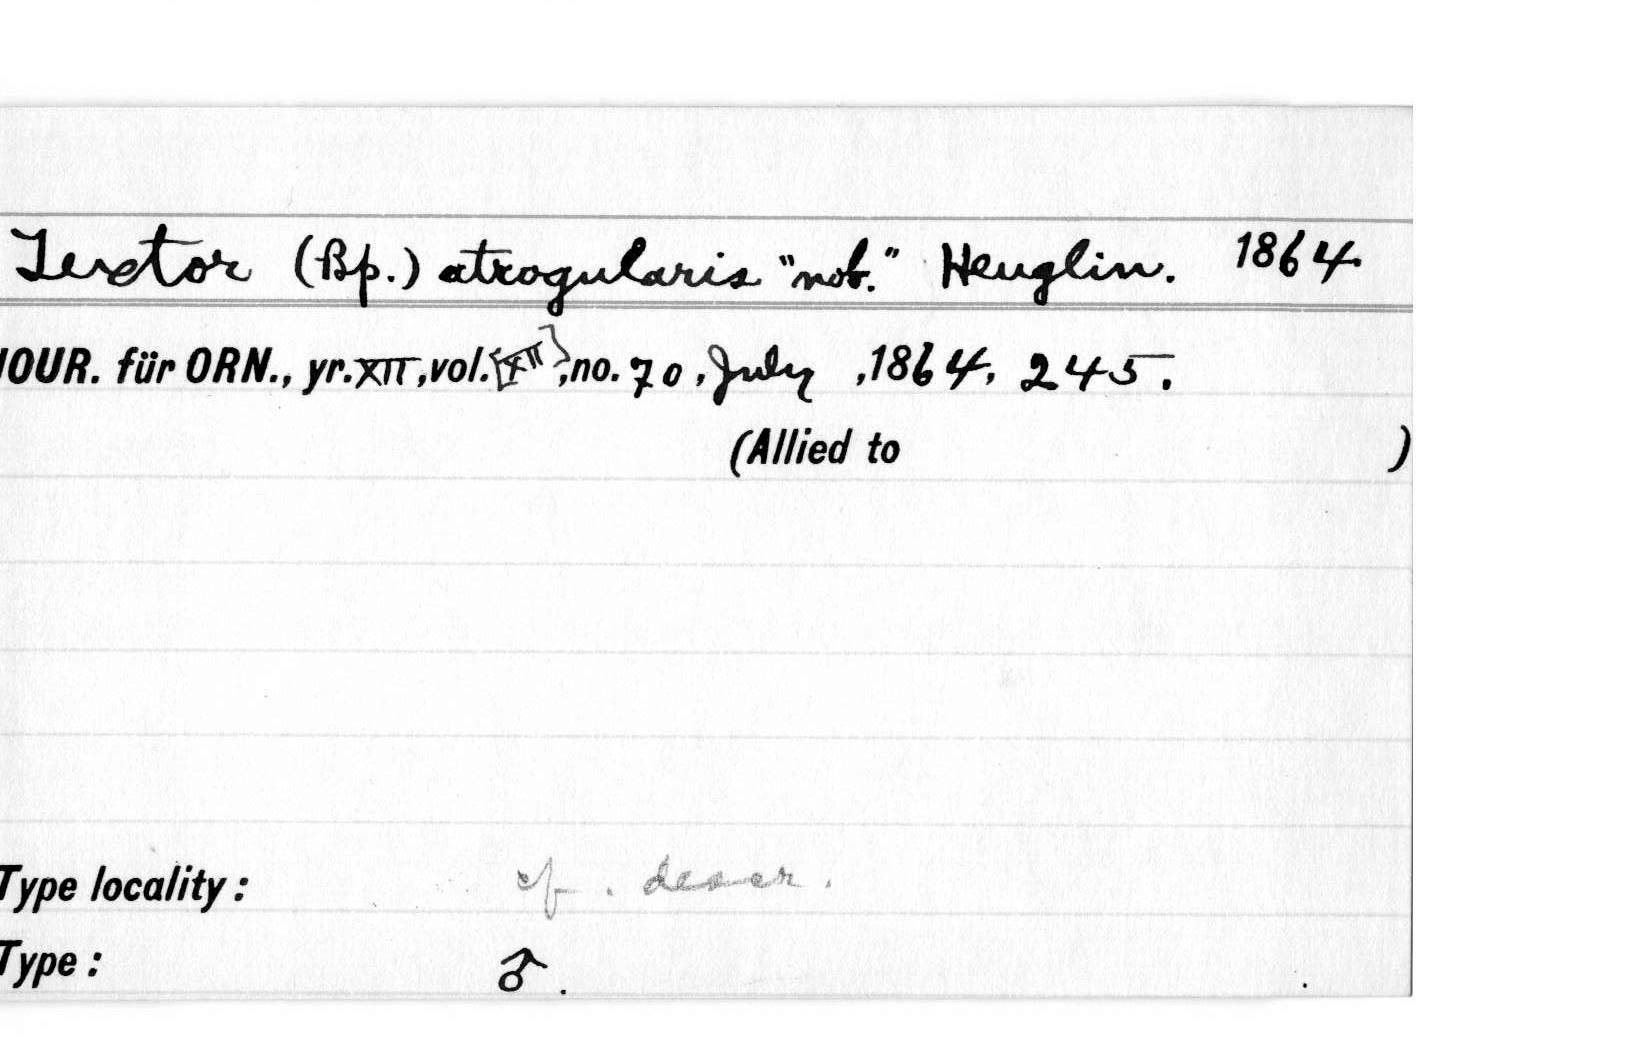 Textor (Bp.) atrogularis "nob." Heuglin. 1864.
JOUR. für ORN., yr. XII, vol. [XII], no. 70, July, 1864, 245.
(Allied to )
Type locality: cf. descr.
Type: ♂.